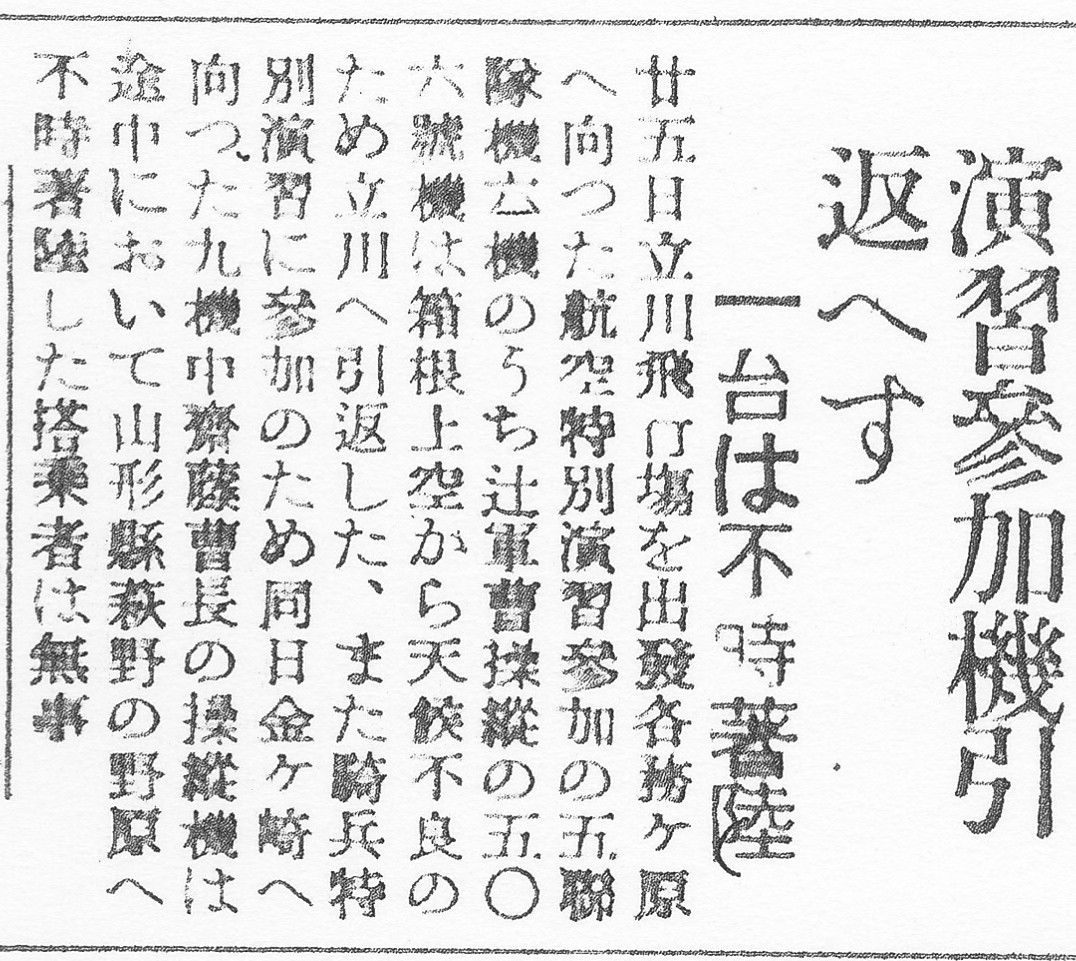 演習參加機引
返へす
一台は不時著陸
廿五日立川飛行場を出發各務ヶ原
へ向つた航空特別演習參加の五聯
隊機六機のうち辻軍曹操縱の五〇
六號機は箱根上空から天候不良の
ため立川へ引返した、また騎兵特
別演習に參加のため同日金ヶ崎へ
向つた九機中齋藤曹長の操縱機は
途中において山形縣萩野の野原へ
不時著陸した搭乘者は無事